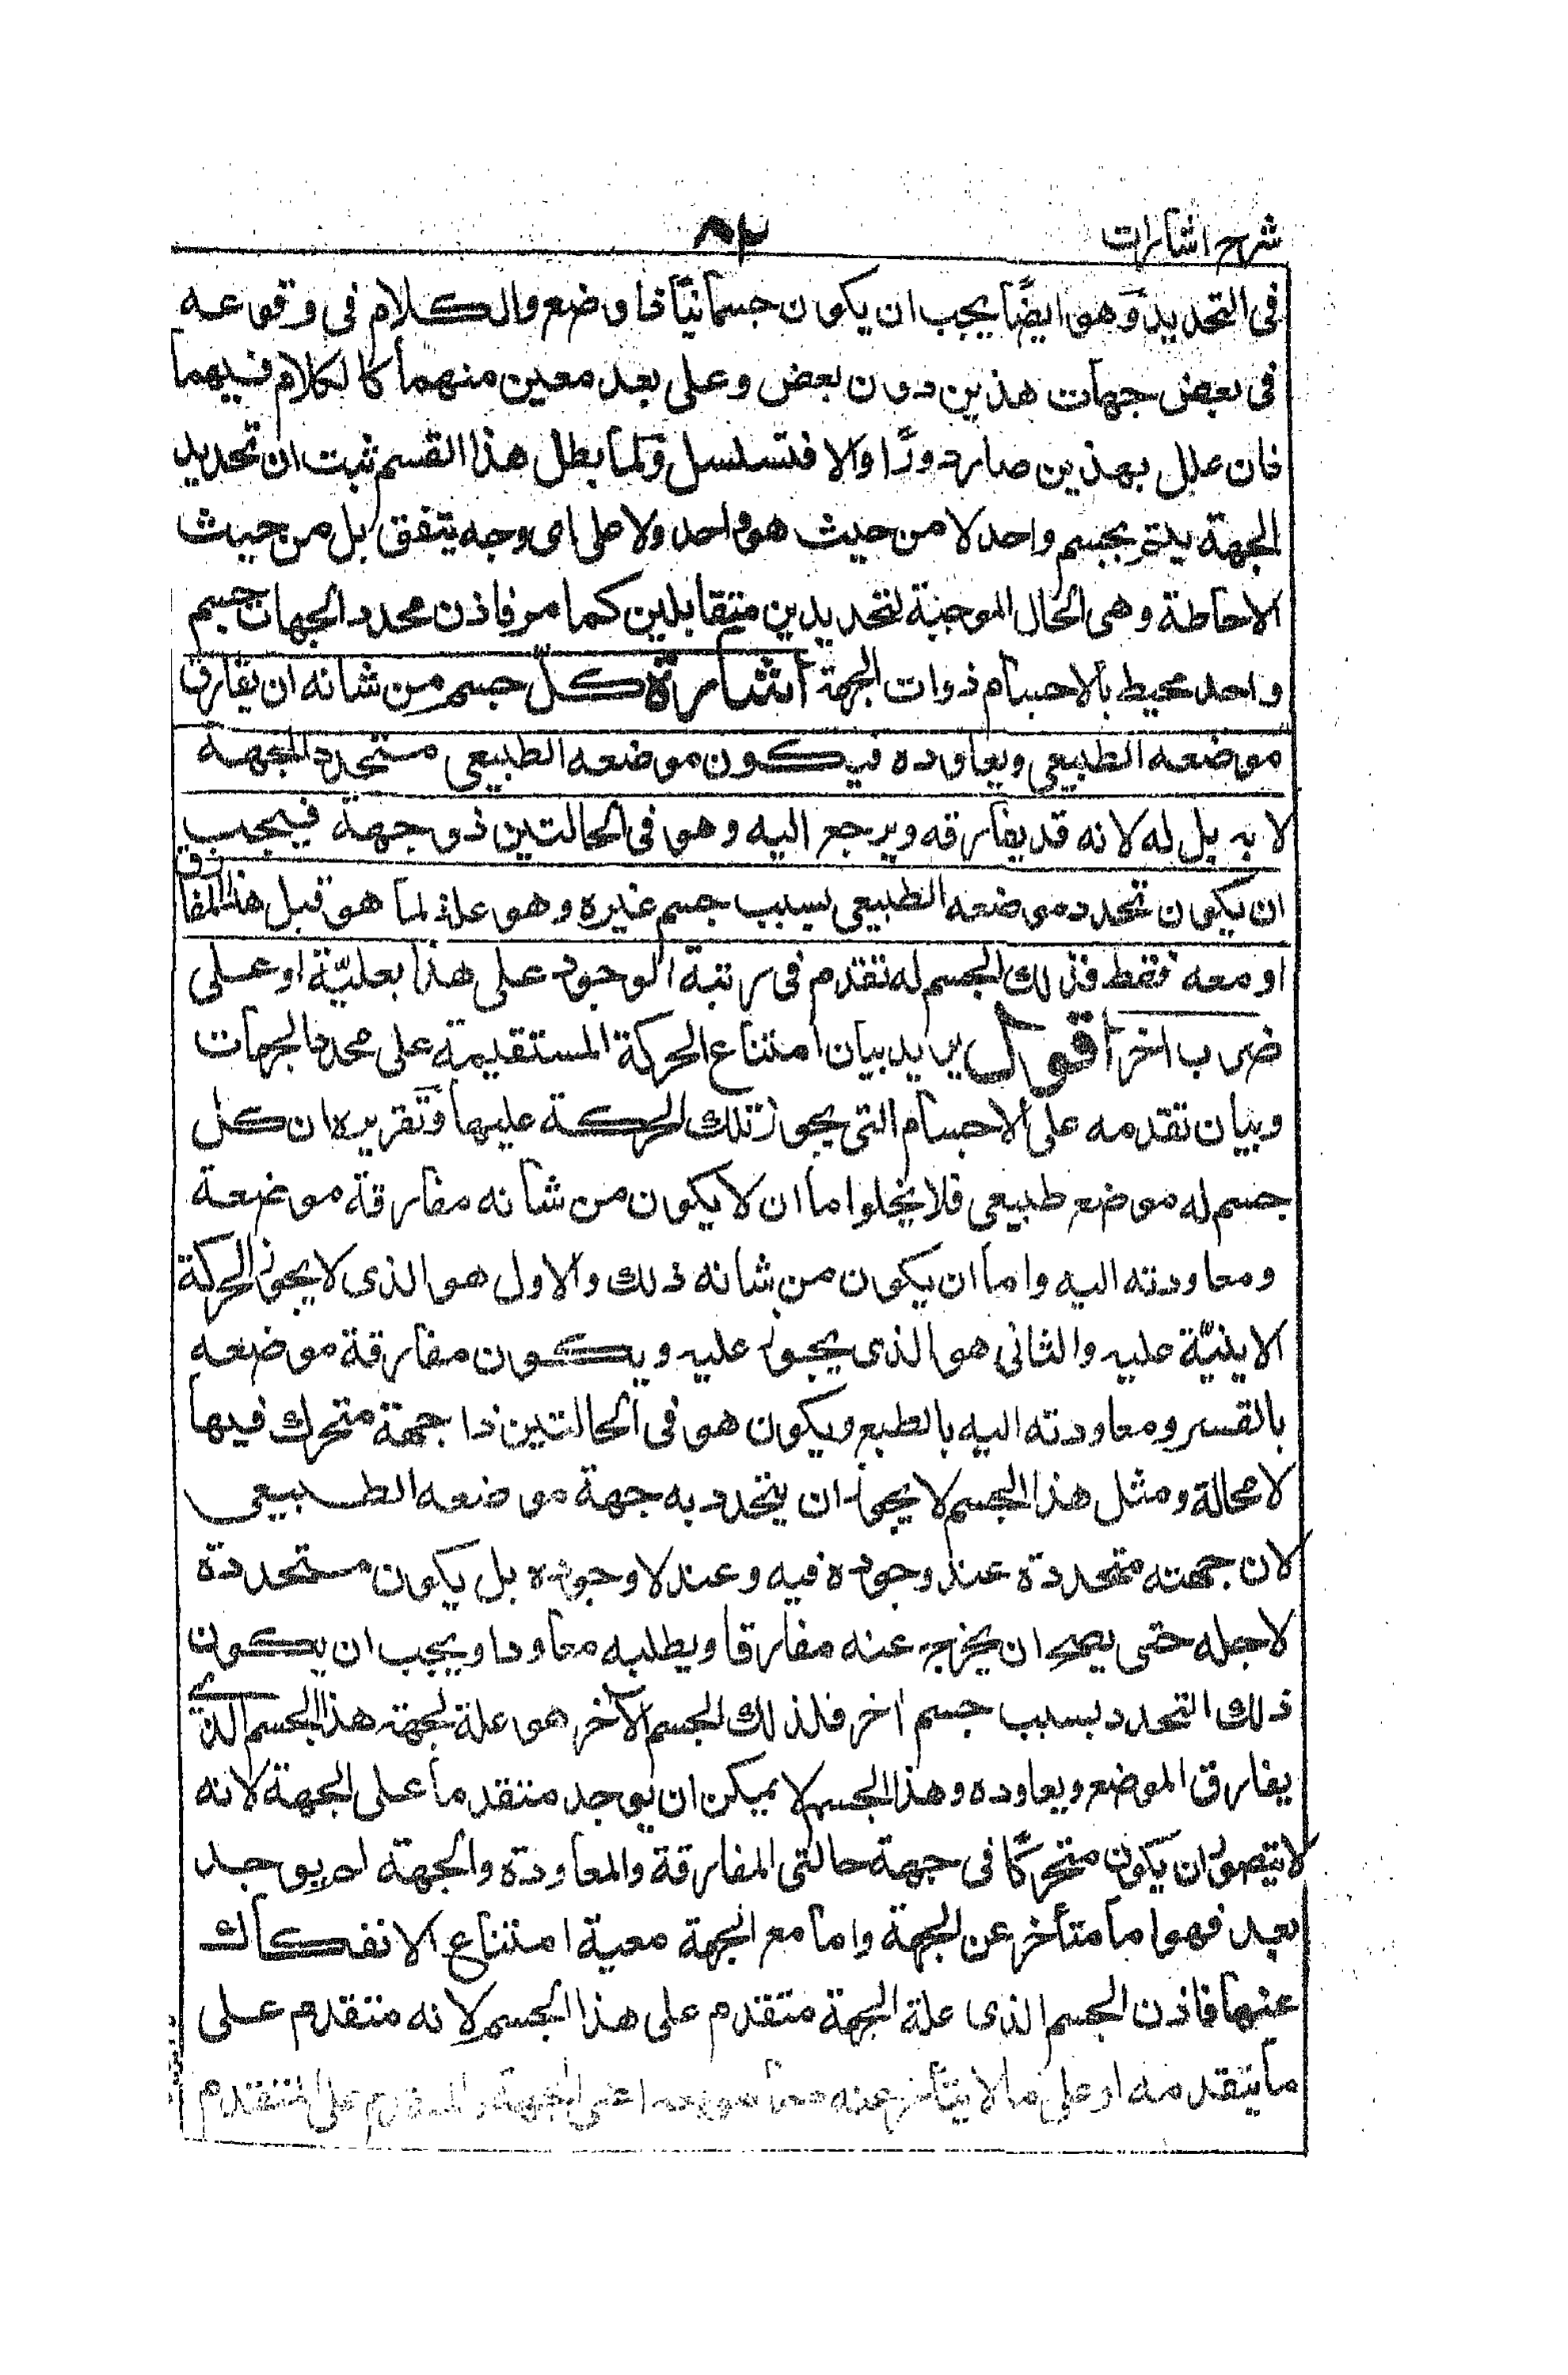 شرح اشارات
٨٢
فى التحديد وهو ايضًا يجب ان يكون جسمانيّا ذا وضع والكلام فى وقوعه
فى بعض جهات هذين دون بعض وعلى بعد معين منهما كالكلام فيهما
فان علل بهذين صار دورًا والا فتسلسل ولما بطل هذا القسم ثبت ان تحديد
الجهة يتم بجسم واحد لا من حيث هو واحد ولا على اى وجه يتفق بل من حيث
الاحاطة وهى الحال الموجبة لتحديدين متقابلين كما مر فاذن محدد الجهات جسم
واحد محيط بالاجسام ذوات الجهة اشارة كلّ جسم من شانه ان يفارق
موضعه الطبيعى ويعاوده فيكون موضعه الطبيعى متحدد الجهة
لا به بل له لانه قد يفارقه ويرجع اليه وهو فى الحالتين ذو جهة فيجب
ان يكون تحدد موضعه الطبيعى بسبب جسم غيره وهو علة لما هو قبل هذا المفارق
او معه فقط فذلك الجسم له تقدم فى رتبة الوجود على هذا بعليّة او على
ضرب اخر اقول يريد بيان امتناع الحركة المستقيمة على محدد الجهات
وبيان تقدمه على الاجسام التى يجوز تلك الحركة عليها وتقريره ان كل
جسم له موضع طبيعى فلا يخلوا ما ان لا يكون من شانه مفارقة موضعة
ومعاودته اليه واما ان يكون من شانه ذلك والاول هو الذى لا يجوز الحركة
الاينيّة عليه والثانى هو الذى يجوز عليه ويكون مفارقة موضعه
بالقسر ومعاودته اليه بالطبع ويكون هو فى الحالتين ذا جهة متحرك فيها
لا محالة ومثل هذا الجسم لا يجوز ان يتحدد به جهة موضعه الطبيعى
لان جهته متحددة عند وجوده فيه وعند لا وجوده بل يكون متحددة
لاجله حتى يصح ان يخرج عنه مفارقا ويطلبه معاودا ويجب ان يكون
ذلك التحدد بسبب جسم اخر فلذلك الجسم الآخر هو علة لجهة هذا الجسم الذى
يفارق الموضع ويعاوده وهذا الجسم لا يمكن ان يوجد متقدما على الجهة لانه
لا يتصور ان يكون متحركًا فى جهة حالتى المفارقة والمعاودة والجهة لم يوجد
بعد فهو اما متأخر عن الجهة واما مع الجهة معية امتناع الانفكاك
عنها فاذن الجسم الذى علة الجهة متقدم على هذا الجسم لانه متقدم على
ما يتقدمه او على ما لا يتأخر عنه مما هو معه اعنى الجهة والمتقدم على المتقدم